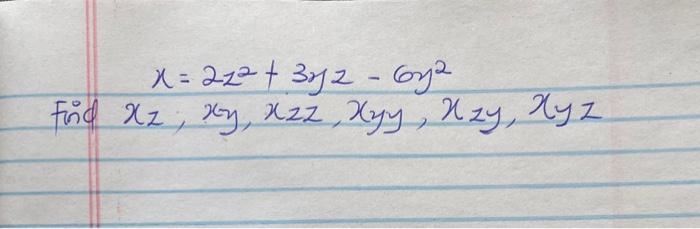 x = 2z² + 3yz - 6y²
Find xz, xy, xzz, xyy, xzy, xyz